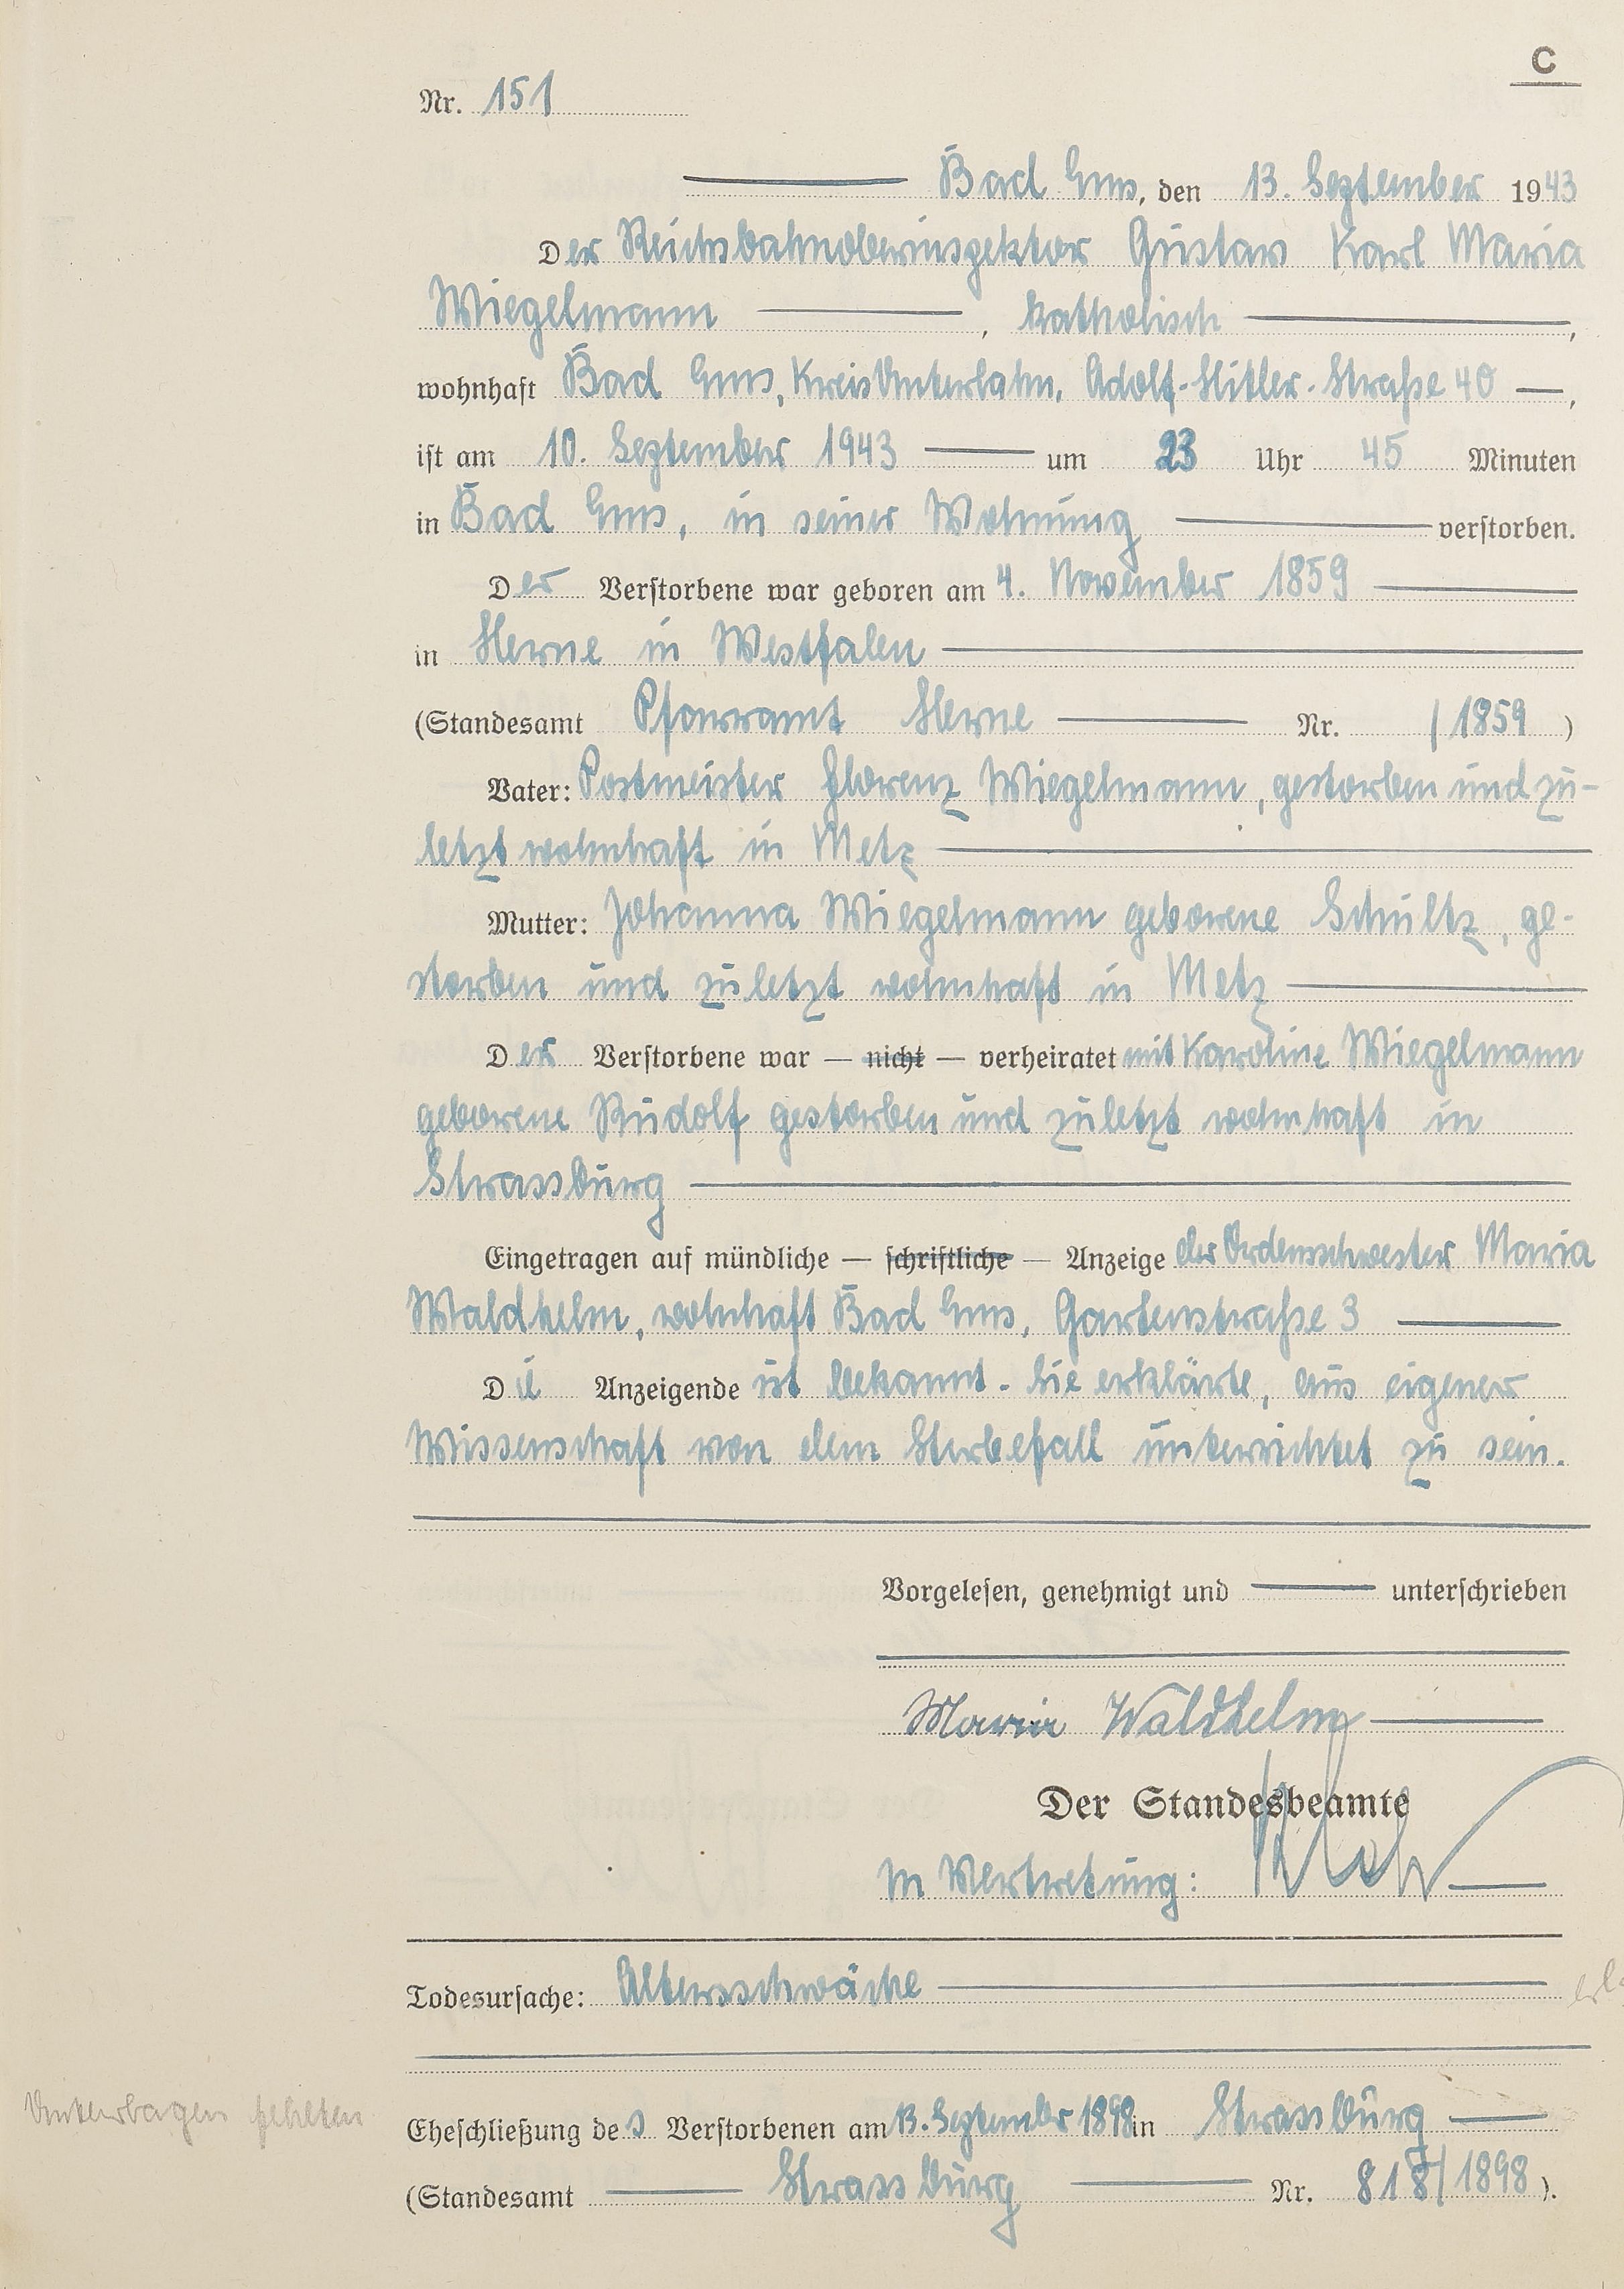 C
Nr. 151
Bad Ems, den 13. September 1943
Der Reichsbahnoberinspektor Gustav Karl Maria
Wiegelmann , katholisch ,
wohnhaft Bad Ems, Kreis Unterlahn, Adolf-Hitler-Straße 40 ,
ist am 10. September 1943 um 23 Uhr 45 Minuten
in Bad Ems, in seiner Wohnung verstorben.
Der Verstorbene war geboren am 4. November 1859
in Herne in Westfalen
(Standesamt Pfarramt Herne Nr. / 1859 )
Vater: Postmeister Florenz Wiegelmann, gestorben und zu-
letzt wohnhaft in Metz
Mutter: Johanna Wiegelmann geborene Schultz, ge-
storben und zuletzt wohnhaft in Metz
Der Verstorbene war — nicht — verheiratet mit Karoline Wiegelmann
geborene Rudolf gestorben und zuletzt wohnhaft in
Strassburg
Eingetragen auf mündliche — schriftliche — Anzeige der Ordensschwester Maria
Waldhelm, wohnhaft Bad Ems, Gartenstraße 3
Die Anzeigende ist bekannt. Sie erklärte, aus eigener
Wissenschaft von dem Sterbefall unterrichtet zu sein.
Vorgelesen, genehmigt und unterschrieben
Maria Waldhelm
Der Standesbeamte
In Vertretung:
Todesursache: Altersschwäche
Unterlagen fehlten
Eheschließung des Verstorbenen am 13. September 1898 in Strassburg
(Standesamt Strassburg Nr. 818/1898 ).